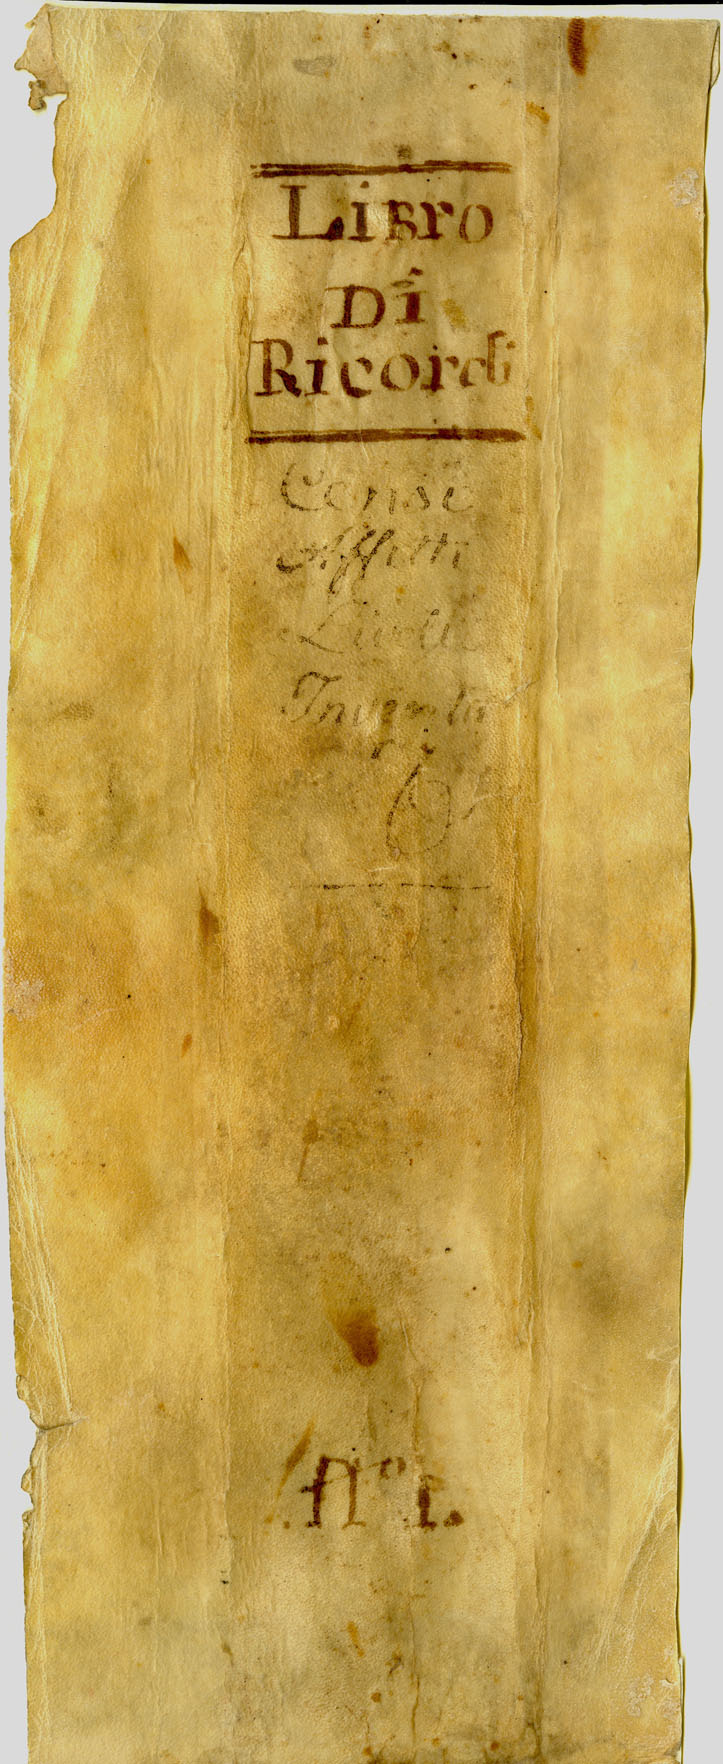 Libro
Di
Ricordi
Censi
Affitti
Livelli
Inventa
ri
N.º 1.